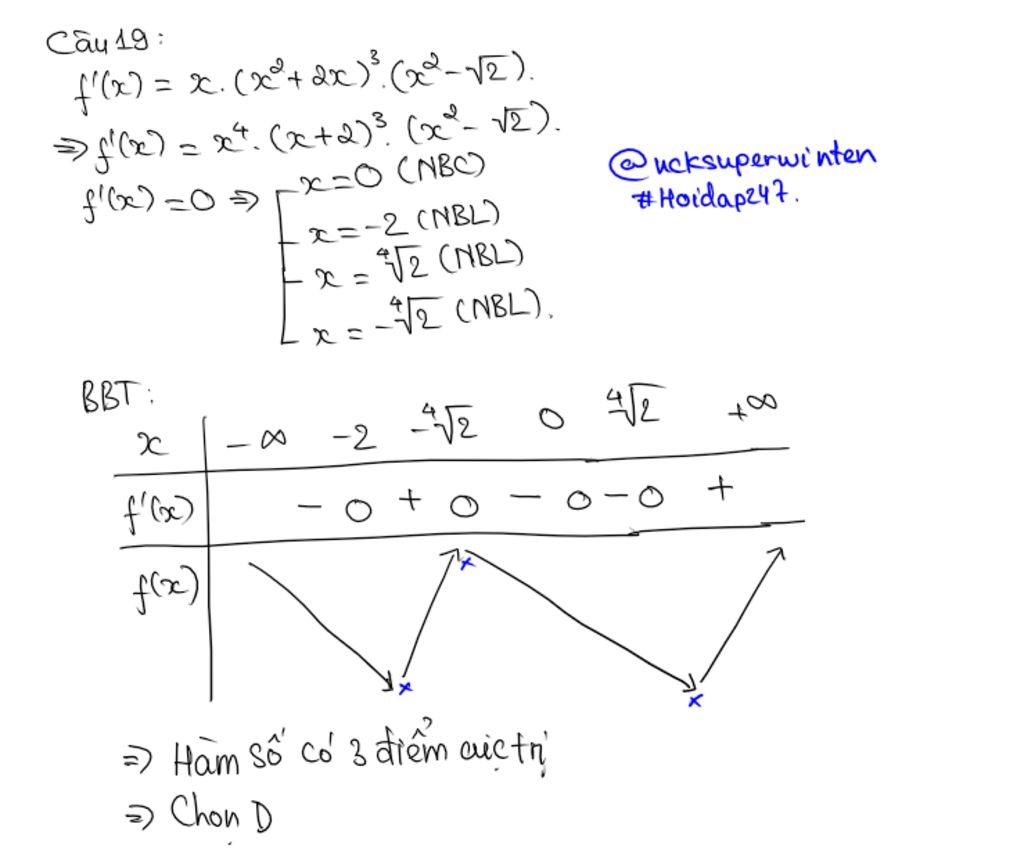 Câu 19:
f'(x) = x.(x²+2x)³.(x²-√2).
⇒ f'(x) = x⁴.(x+2)³.(x²-√2).
f'(x)=0 ⇒ x=0 (NBC)
x=-2 (NBL)
x=⁴√2 (NBL)
x=-⁴√2 (NBL).
@ucksuperwinten
#Hoidap247.
BBT:
x -∞ -2 -⁴√2 0 ⁴√2 +∞
f'(x) - 0 + 0 - 0 - 0 +
f(x)
⇒ Hàm số có 3 điểm cực trị
⇒ Chọn D